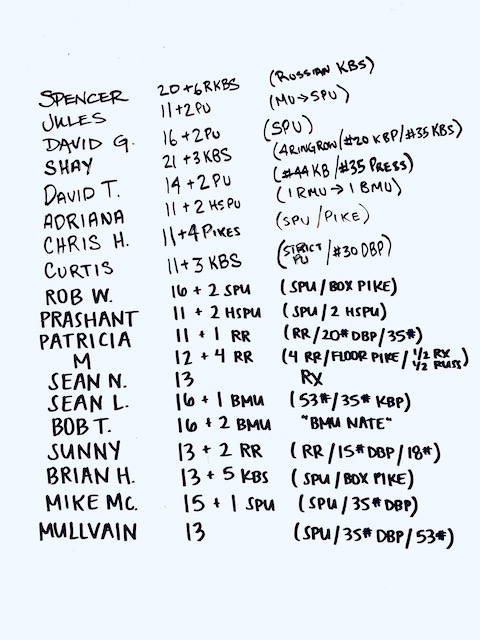 SPENCER 20+6RKBS (RUSSIAN KBS)
JULES 11+2PU (MU→SPU)
DAVID G. 16+2PU (SPU)
SHAY 21+3KBS (4RINGROW/#20KBP/#35KBS)
DAVID T. 14+2PU (#44KB/#35PRESS)
ADRIANA 11+2HSPU (1RMU→1BMU)
CHRIS H. 11+4PIKES (SPU/PIKE)
CURTIS 11+3 KBS (STRICT PU/#30DBP)
ROB W. 16+2 SPU (SPU/BOX PIKE)
PRASHANT 11+2 HSPU (SPU/2 HSPU)
PATRICIA 11+1 RR (RR/20#DBP/35#)
M 12+4 RR (4 RR/FLOOR PIKE/1/2 RX 1/2 RUSS)
SEAN N. 13 RX
SEAN L. 16+1 BMU (53#/35# KBP)
BOB T. 16+2 BMU "BMU NATE"
SUNNY 13+2 RR (RR/15#DBP/18#)
BRIAN H. 13+5 KBS (SPU/BOX PIKE)
MIKE MC. 15+1 SPU (SPU/35#DBP)
MULLVAIN 13 (SPU/35# DBP/53#)